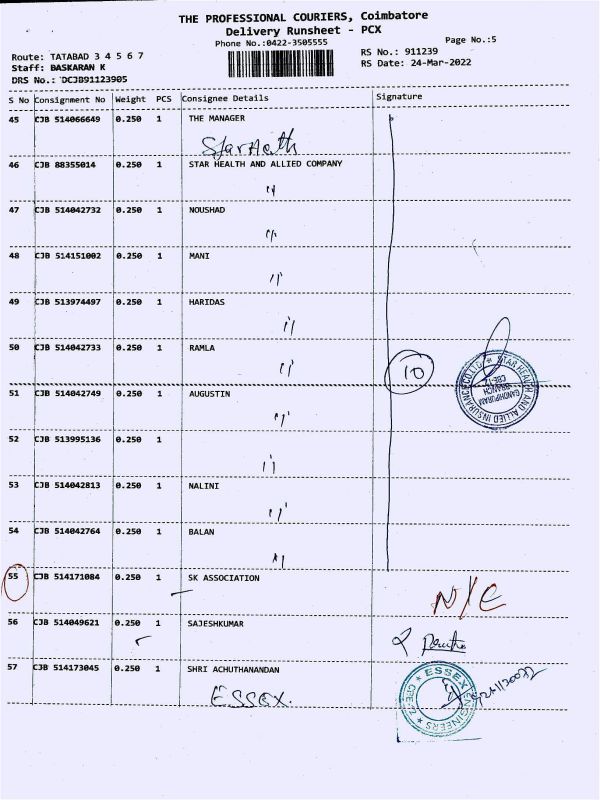 THE PROFESSIONAL COURIERS, Coimbatore
Delivery Runsheet - PCX
Phone No.:0422-3505555
Page No.:5
Route: TATABAD 3 4 5 6 7
RS No.: 911239
Staff: BASKARAN K
RS Date: 24-Mar-2022
DRS No.: DCJB91123905
S No Consignment No Weight PCS Consignee Details Signature
45 CJB 514066649 0.250 1 THE MANAGER
46 CJB 88355014 0.250 1 STAR HEALTH AND ALLIED COMPANY
"
47 CJB 514042732 0.250 1 NOUSHAD
"
48 CJB 514151002 0.250 1 MANI
"
49 CJB 513974497 0.250 1 HARIDAS
"
50 CJB 514042733 0.250 1 RAMLA
"
10
STAR HEALTH AND ALLIED INSURANCE CO.LTD.
GANDHIPURAM
BRANCH
CBE-12
51 CJB 514042749 0.250 1 AUGUSTIN
"
52 CJB 513995136 0.250 1
"
53 CJB 514042813 0.250 1 NALINI
"
54 CJB 514042764 0.250 1 BALAN
"
55 CJB 514171084 0.250 1 SK ASSOCIATION
N/C
56 CJB 514049621 0.250 1 SAJESHKUMAR
57 CJB 514173045 0.250 1 SHRI ACHUTHANANDAN
ESSEX.
ESSEX ENGINEERS